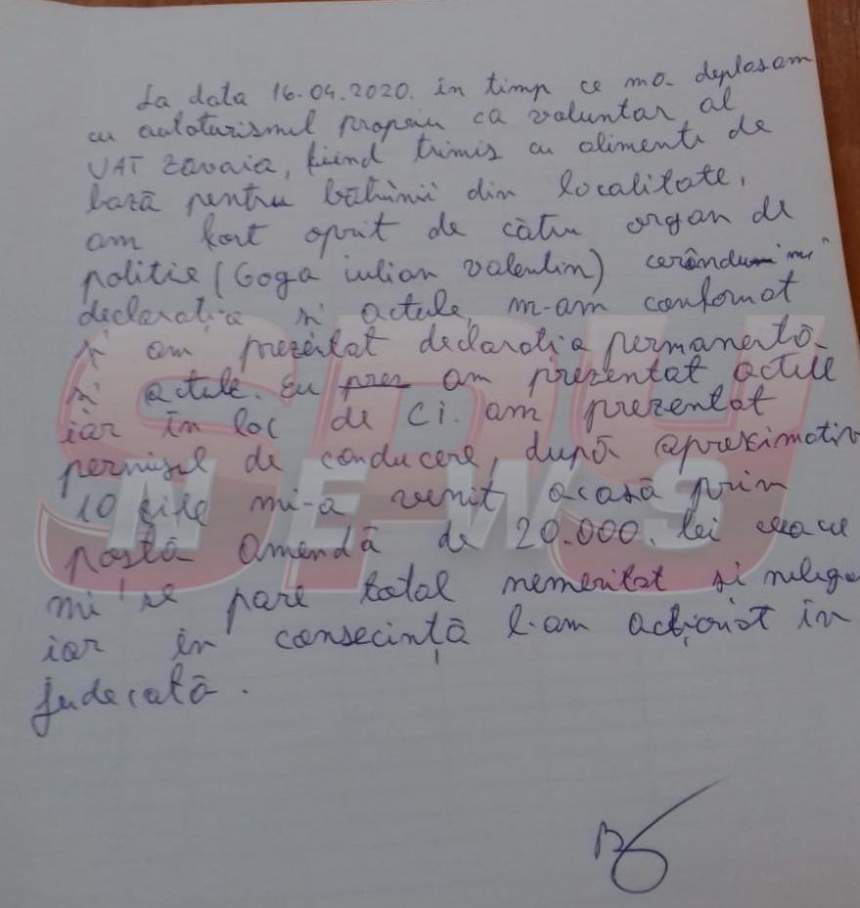 La data 16.04.2020. în timp ce mă deplasam
cu autoturismul propriu ca voluntar al
UAT Zăvoaia, fiind trimis cu alimente de
bază pentru bătrînii din localitate,
am fost oprit de către organ de
politie (Goga iulian valentin) cerându mi
declarația și actele, m-am conformat
și am prezentat declarația permanentă
și actele. Eu prez am prezentat actele
iar în loc de Ci. am prezentat
permisul de conducere, după aproximativ
10 zile mi-a venit acasă prin
postă amendă de 20.000. lei ceea ce
mi se pare total nemeritat și nelega
iar în consecință l-am acționat în
judecată.
SPY
NEWS